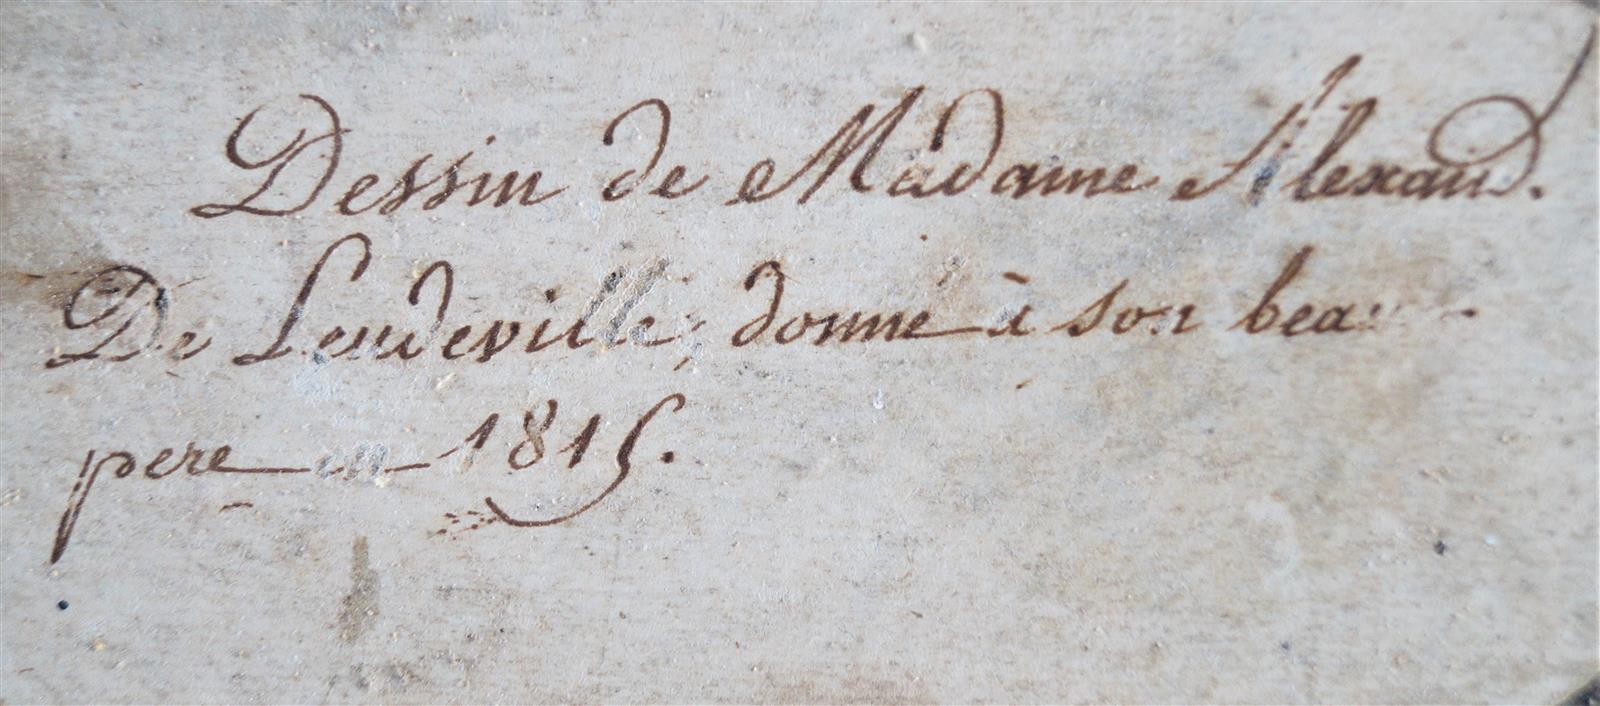 Dessin de Madame Alexand.
De Leudeville, donné à son beau-
pere en 1815.